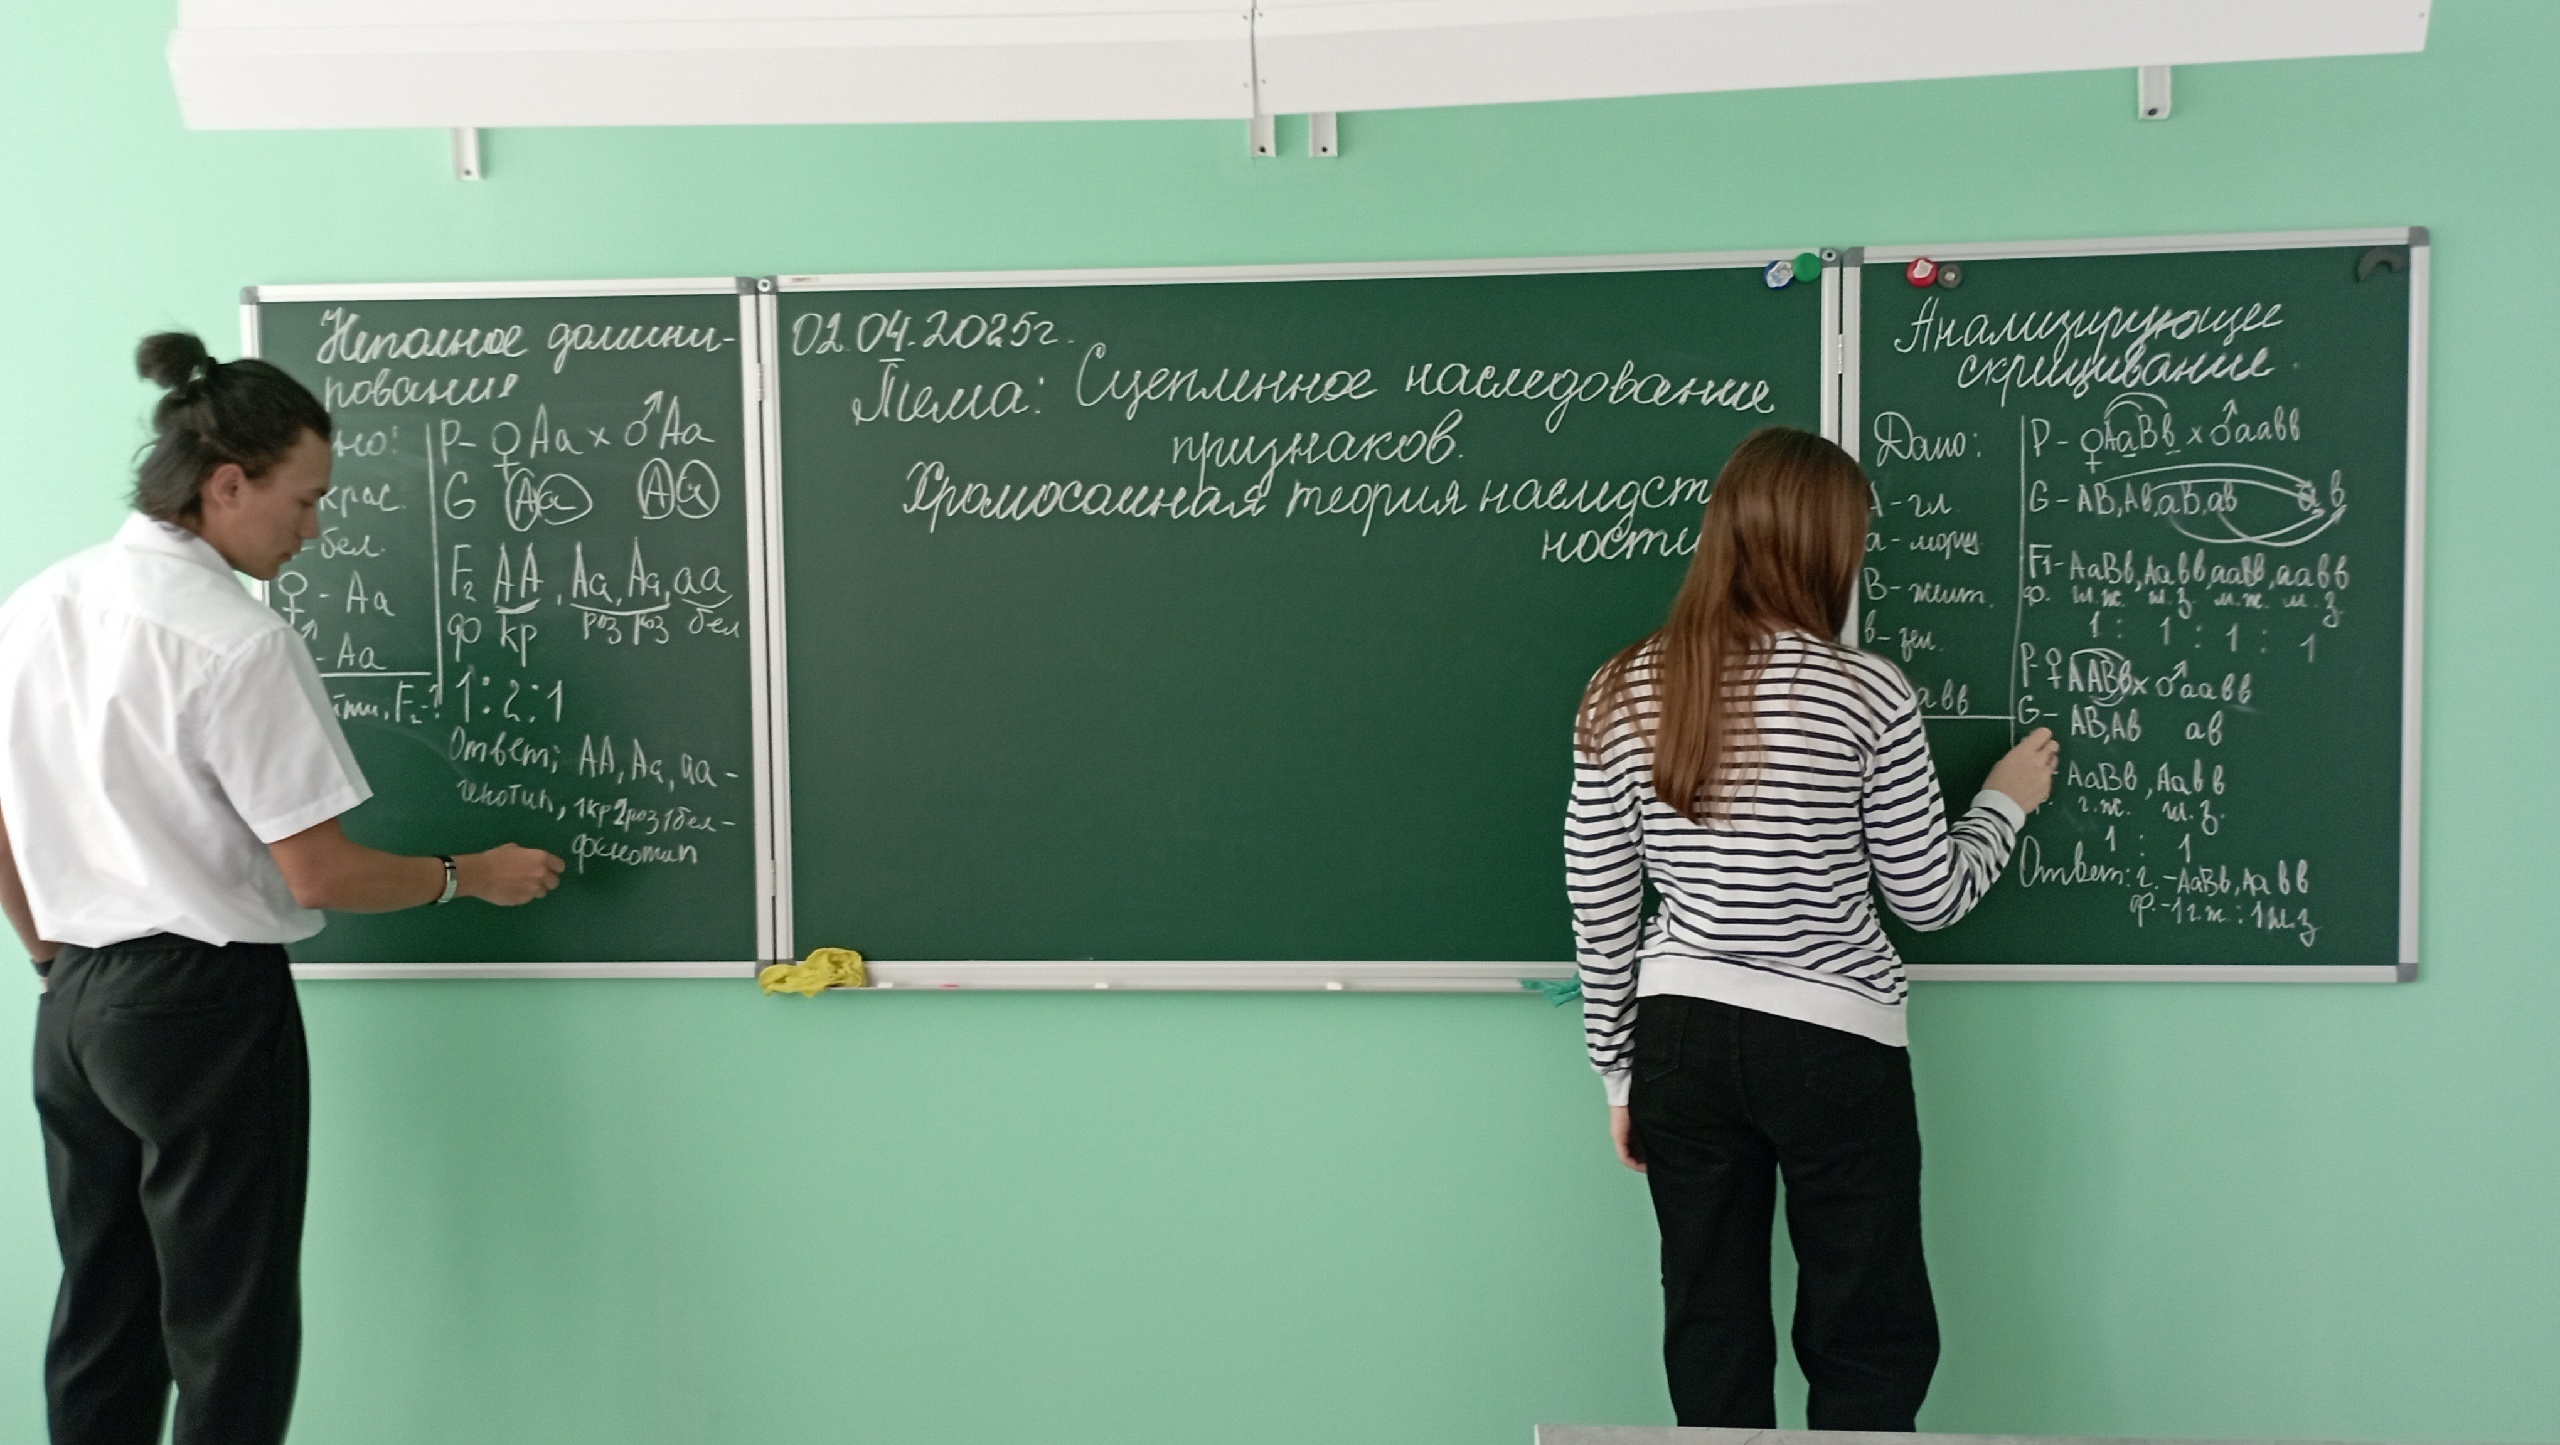 Неполное домини-
рование
но:
крас.
бел.
♀ - Aa
- Aa
F₂-?
P- ♀ Aa x ♂ Aa
G Aa Aa
F₂ AA, Aa, Aa, aa
ф кр роз роз бел
1:2:1
Ответ; AA, Aa, aa -
генотип, 1кр2роз1бел-
фенотип
02.04.2025г.
Тема: Сцепленное наследование
признаков.
Хромосомная теория наследст
ности
Анализирующее
скрещивание.
Дано:
А - гл.
а - морщ
В - желт.
в - зел.
авв
P - ♀АаВв x ♂аавв
G - АВ, Ав, аВ, ав ав
F₁ - АаВв, Аавв, ааВв, аавв
ф. м.ж. м.з.
1 : 1 : 1 : 1
P- ♀ ААВв x ♂ аавв
G - АВ, Ав ав
АаВв, Аавв
г.ж.
1 : 1
Ответ: г. - АаВв, Аавв
ф. - 1г.ж. : 1